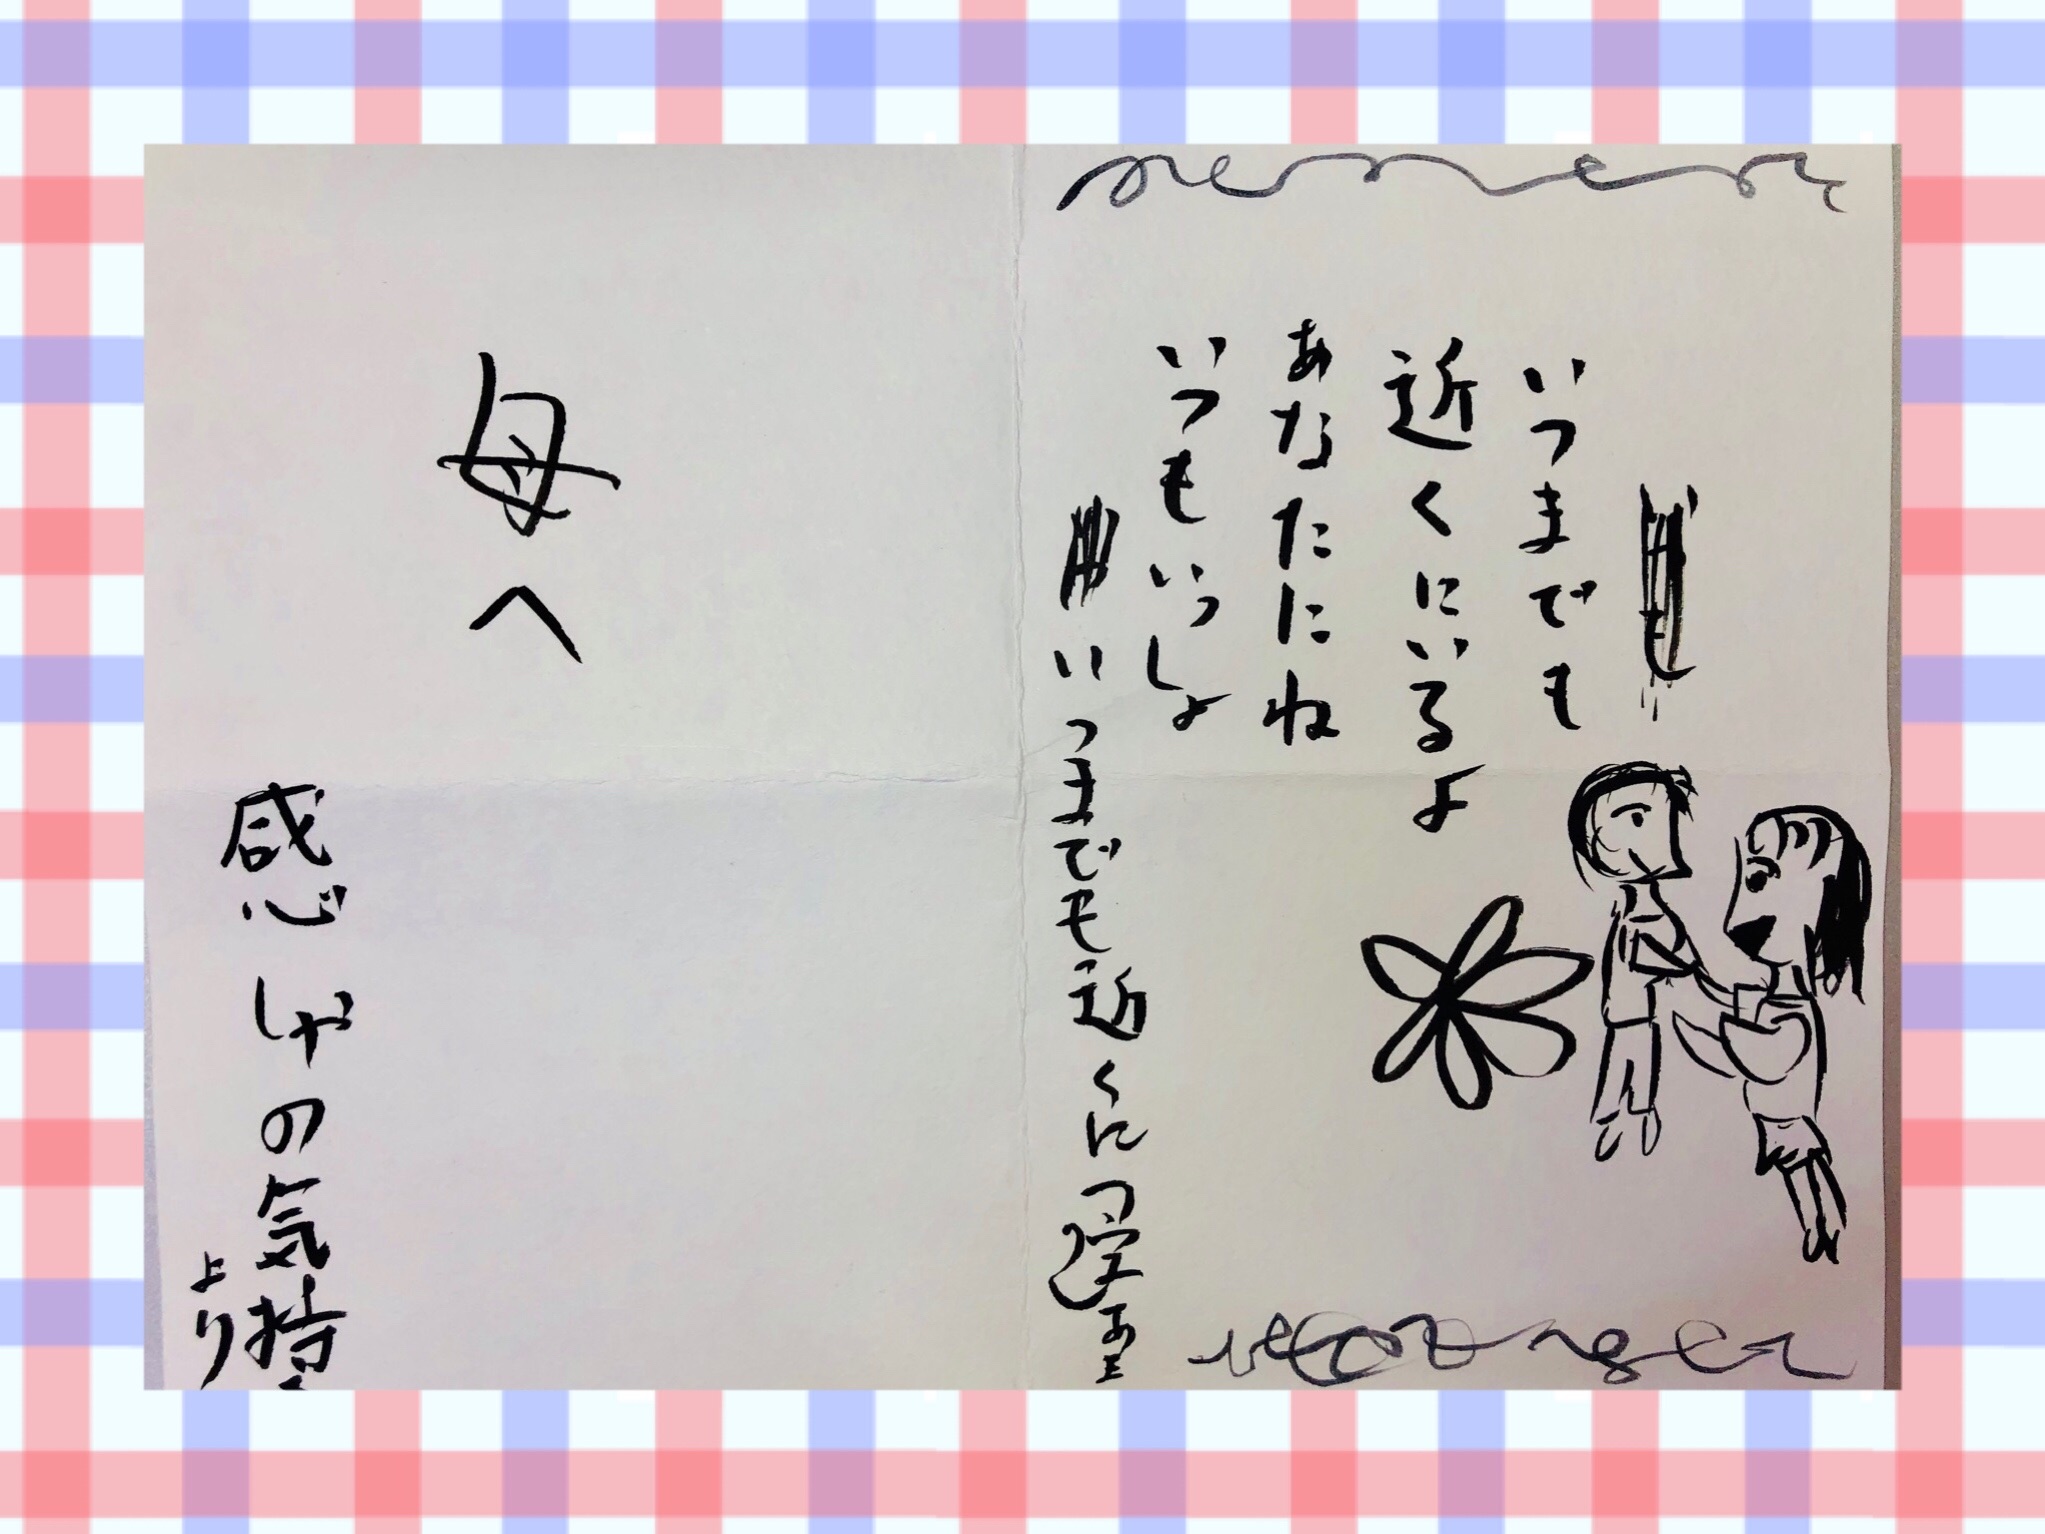 いつまでも
近くにいるよ
あなたにね
いつもいっしょ
いつまでも近くに
母へ
感しゃの気持
より